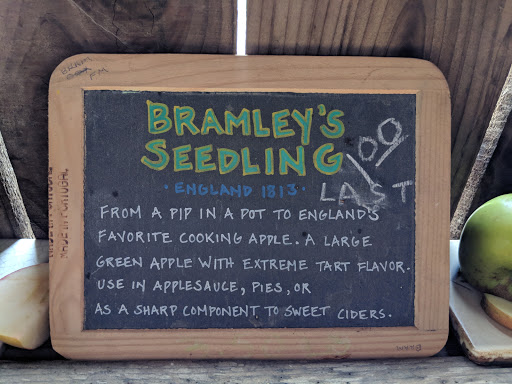 BRAMLEY'S
SEEDLING
· ENGLAND 1813 ·
LAST
FROM A PIP IN A POT TO ENGLAND'S
FAVORITE COOKING APPLE. A LARGE
GREEN APPLE WITH EXTREME TART FLAVOR.
USE IN APPLESAUCE, PIES, OR
AS A SHARP COMPONENT TO SWEET CIDERS.
MADE IN PORTUGAL